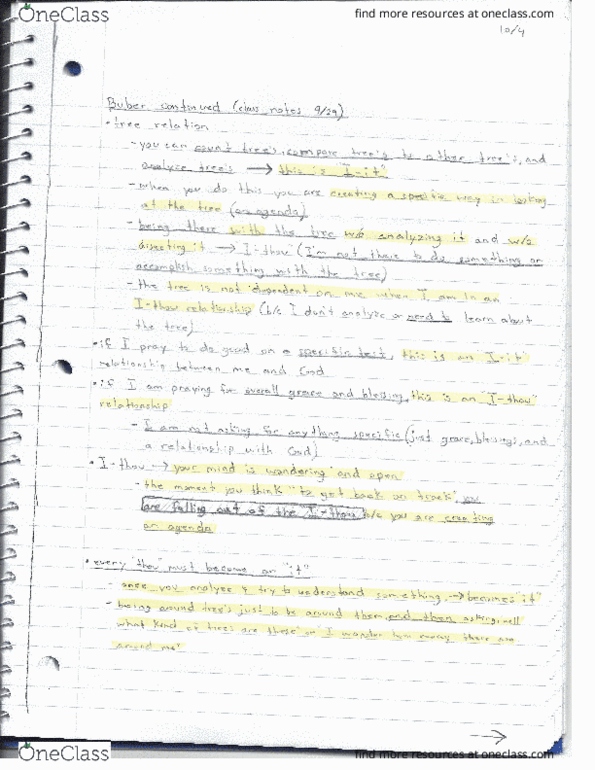 OneClass
find more resources at oneclass.com
10/4
Buber continued (class notes 9/29)
• tree relation
- you can count tree's, compare tree's to other tree's, and
analyze tree's → this is "I-it"
- when you do this you are creating a specific way in looking
at the tree (an agenda)
- being there with the tree w/o analyzing it and w/o
dissecting it → I-thou (I'm not there to do something or
accomplish something with the tree)
- the tree is not dependent on me when I am in an
I-thou relationship (b/c I don't analyze or need to learn about
the tree)
• if I pray to do good on a specific test, this is an "I-it"
relationship between me and God
• if I am praying for overall grace and blessing, this is an "I-thou"
relationship
- I am not asking for anything specific (just grace, blessings, and
a relationship with God)
• I-thou → your mind is wandering and open
- the moment you think "to get back on track", you
are falling out of the I-thou b/c you are creating
an agenda
• every "thou" must become an "it"
- once you analyze & try to understand something, → becomes "it"
- being around tree's just to be around them, and then asking, well
what kind of trees are these or I wonder how many there are
around me"
→
OneClass
find more resources at oneclass.com